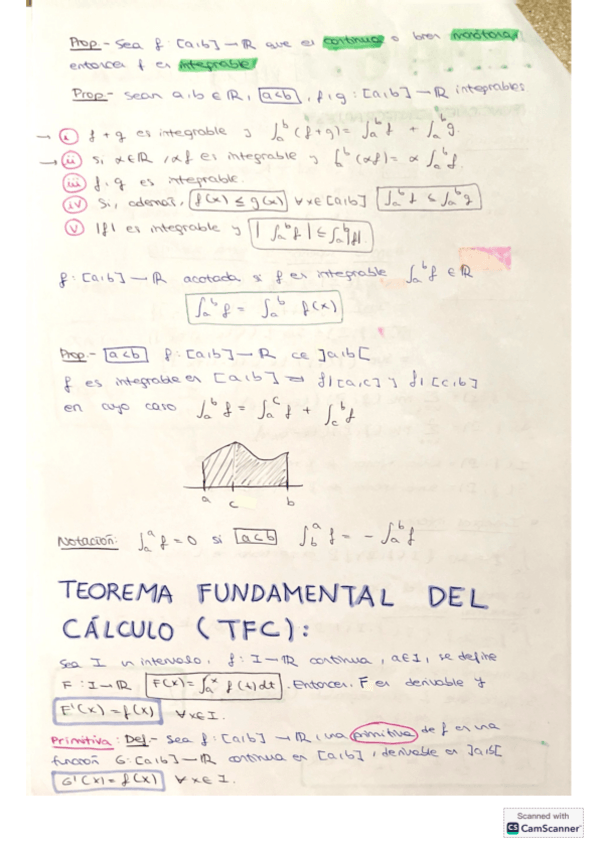 Prop.- Sea f: [a,b] → ℝ que es continua o bien monótona,
entonces f es integrable
Prop.- Sean a,b ∈ ℝ, a<b, f,g: [a,b] → ℝ integrables
→ i f + g es integrable y ∫ₐᵇ (f+g) = ∫ₐᵇ f + ∫ₐᵇ g.
→ ii Si α∈ℝ, αf es integrable y ∫ₐᵇ (αf) = α ∫ₐᵇ f.
iii f·g es integrable.
iv Si, además, f(x) ≤ g(x) ∀x∈[a,b] ∫ₐᵇ f ≤ ∫ₐᵇ g
v |f| es integrable y |∫ₐᵇ f| ≤ ∫ₐᵇ |f|.
f: [a,b] → ℝ acotada si f es integrable ∫ₐᵇ f ∈ ℝ
∫ₐᵇ f = ∫ₐᵇ f(x)
Prop.- a<b f: [a,b] → ℝ c∈ ]a,b[
f es integrable en [a,b] ⇔ f|[a,c] y f|[c,b]
en cuyo caso ∫ₐᵇ f = ∫ₐᶜ f + ∫_c^b f
a c b
Notación: ∫ₐᵃ f = 0 si a<b ∫_b^a f = - ∫ₐᵇ f
TEOREMA FUNDAMENTAL DEL
CÁLCULO (TFC):
Sea I un intervalo, f: I → ℝ continua, a∈I, se define
F: I → ℝ F(x) = ∫ₐˣ f(t)dt. Entonces F es derivable y
F'(x) = f(x) ∀x∈I.
Primitiva: Def.- Sea f: [a,b] → ℝ, una primitiva de f es una
función G: [a,b] → ℝ continua en [a,b], derivable en ]a,b[
G'(x) = f(x) ∀x∈I.
Scanned with
CS CamScanner